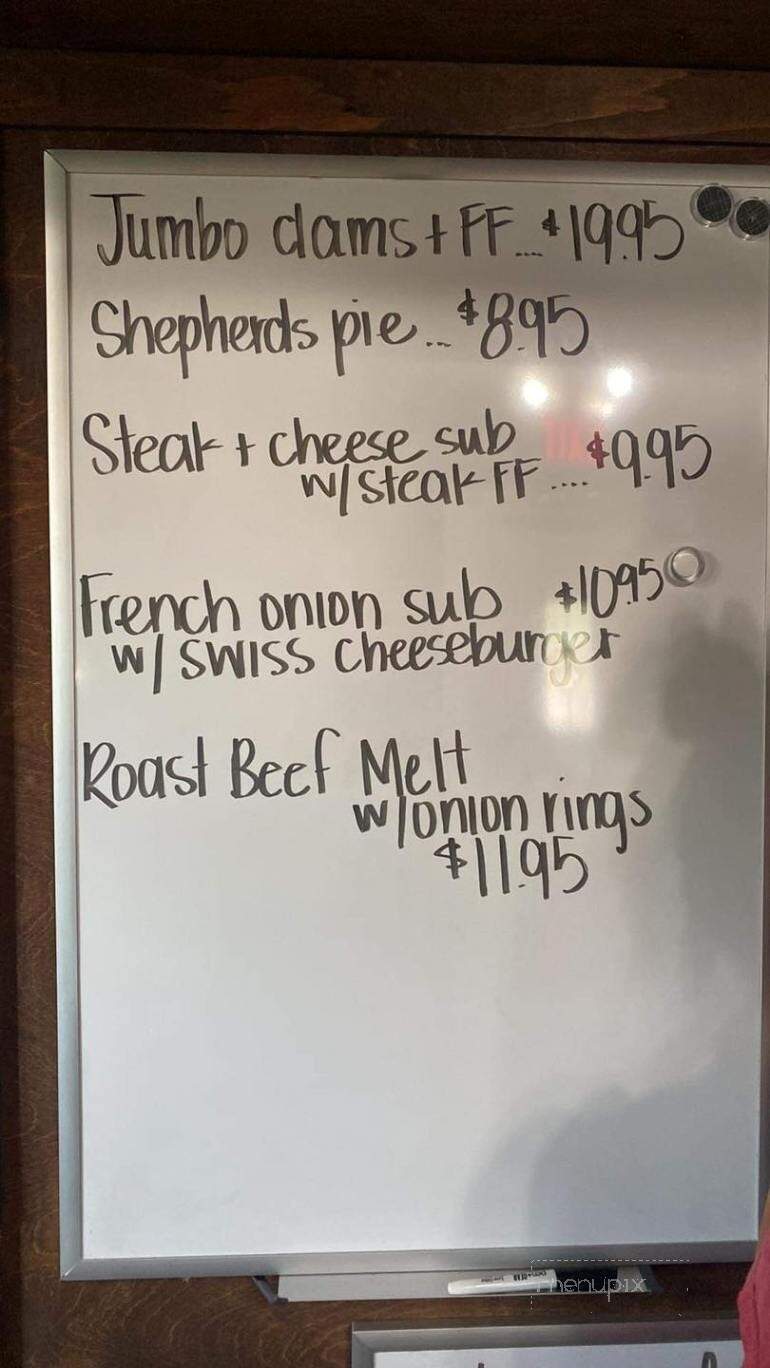 Jumbo clams + FF.... $19.95
Shepherds pie... $8.95
Steak + cheese sub $9.95
w/steak FF ....
French onion sub $10.95
w/ SWISS cheeseburger
Roast Beef Melt
w/onion rings
$11.95
menupix